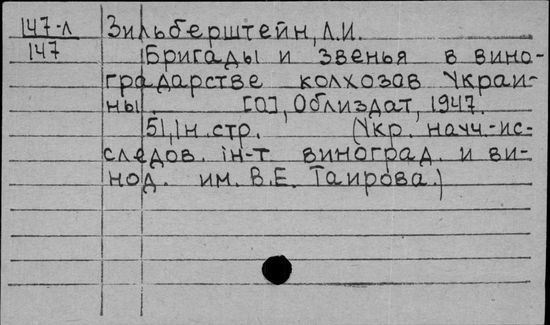 147-л Зильберштейн, Л.И.
147 Бригады и звенья в вино-
градарстве колхозав Украи-
ны. [О], Облиздат, 1947.
51, Iн. стр. (Укр. научн.-ис-
следов. iн-т виноград. и ви-
нод. им. В.Е. Таирова.)